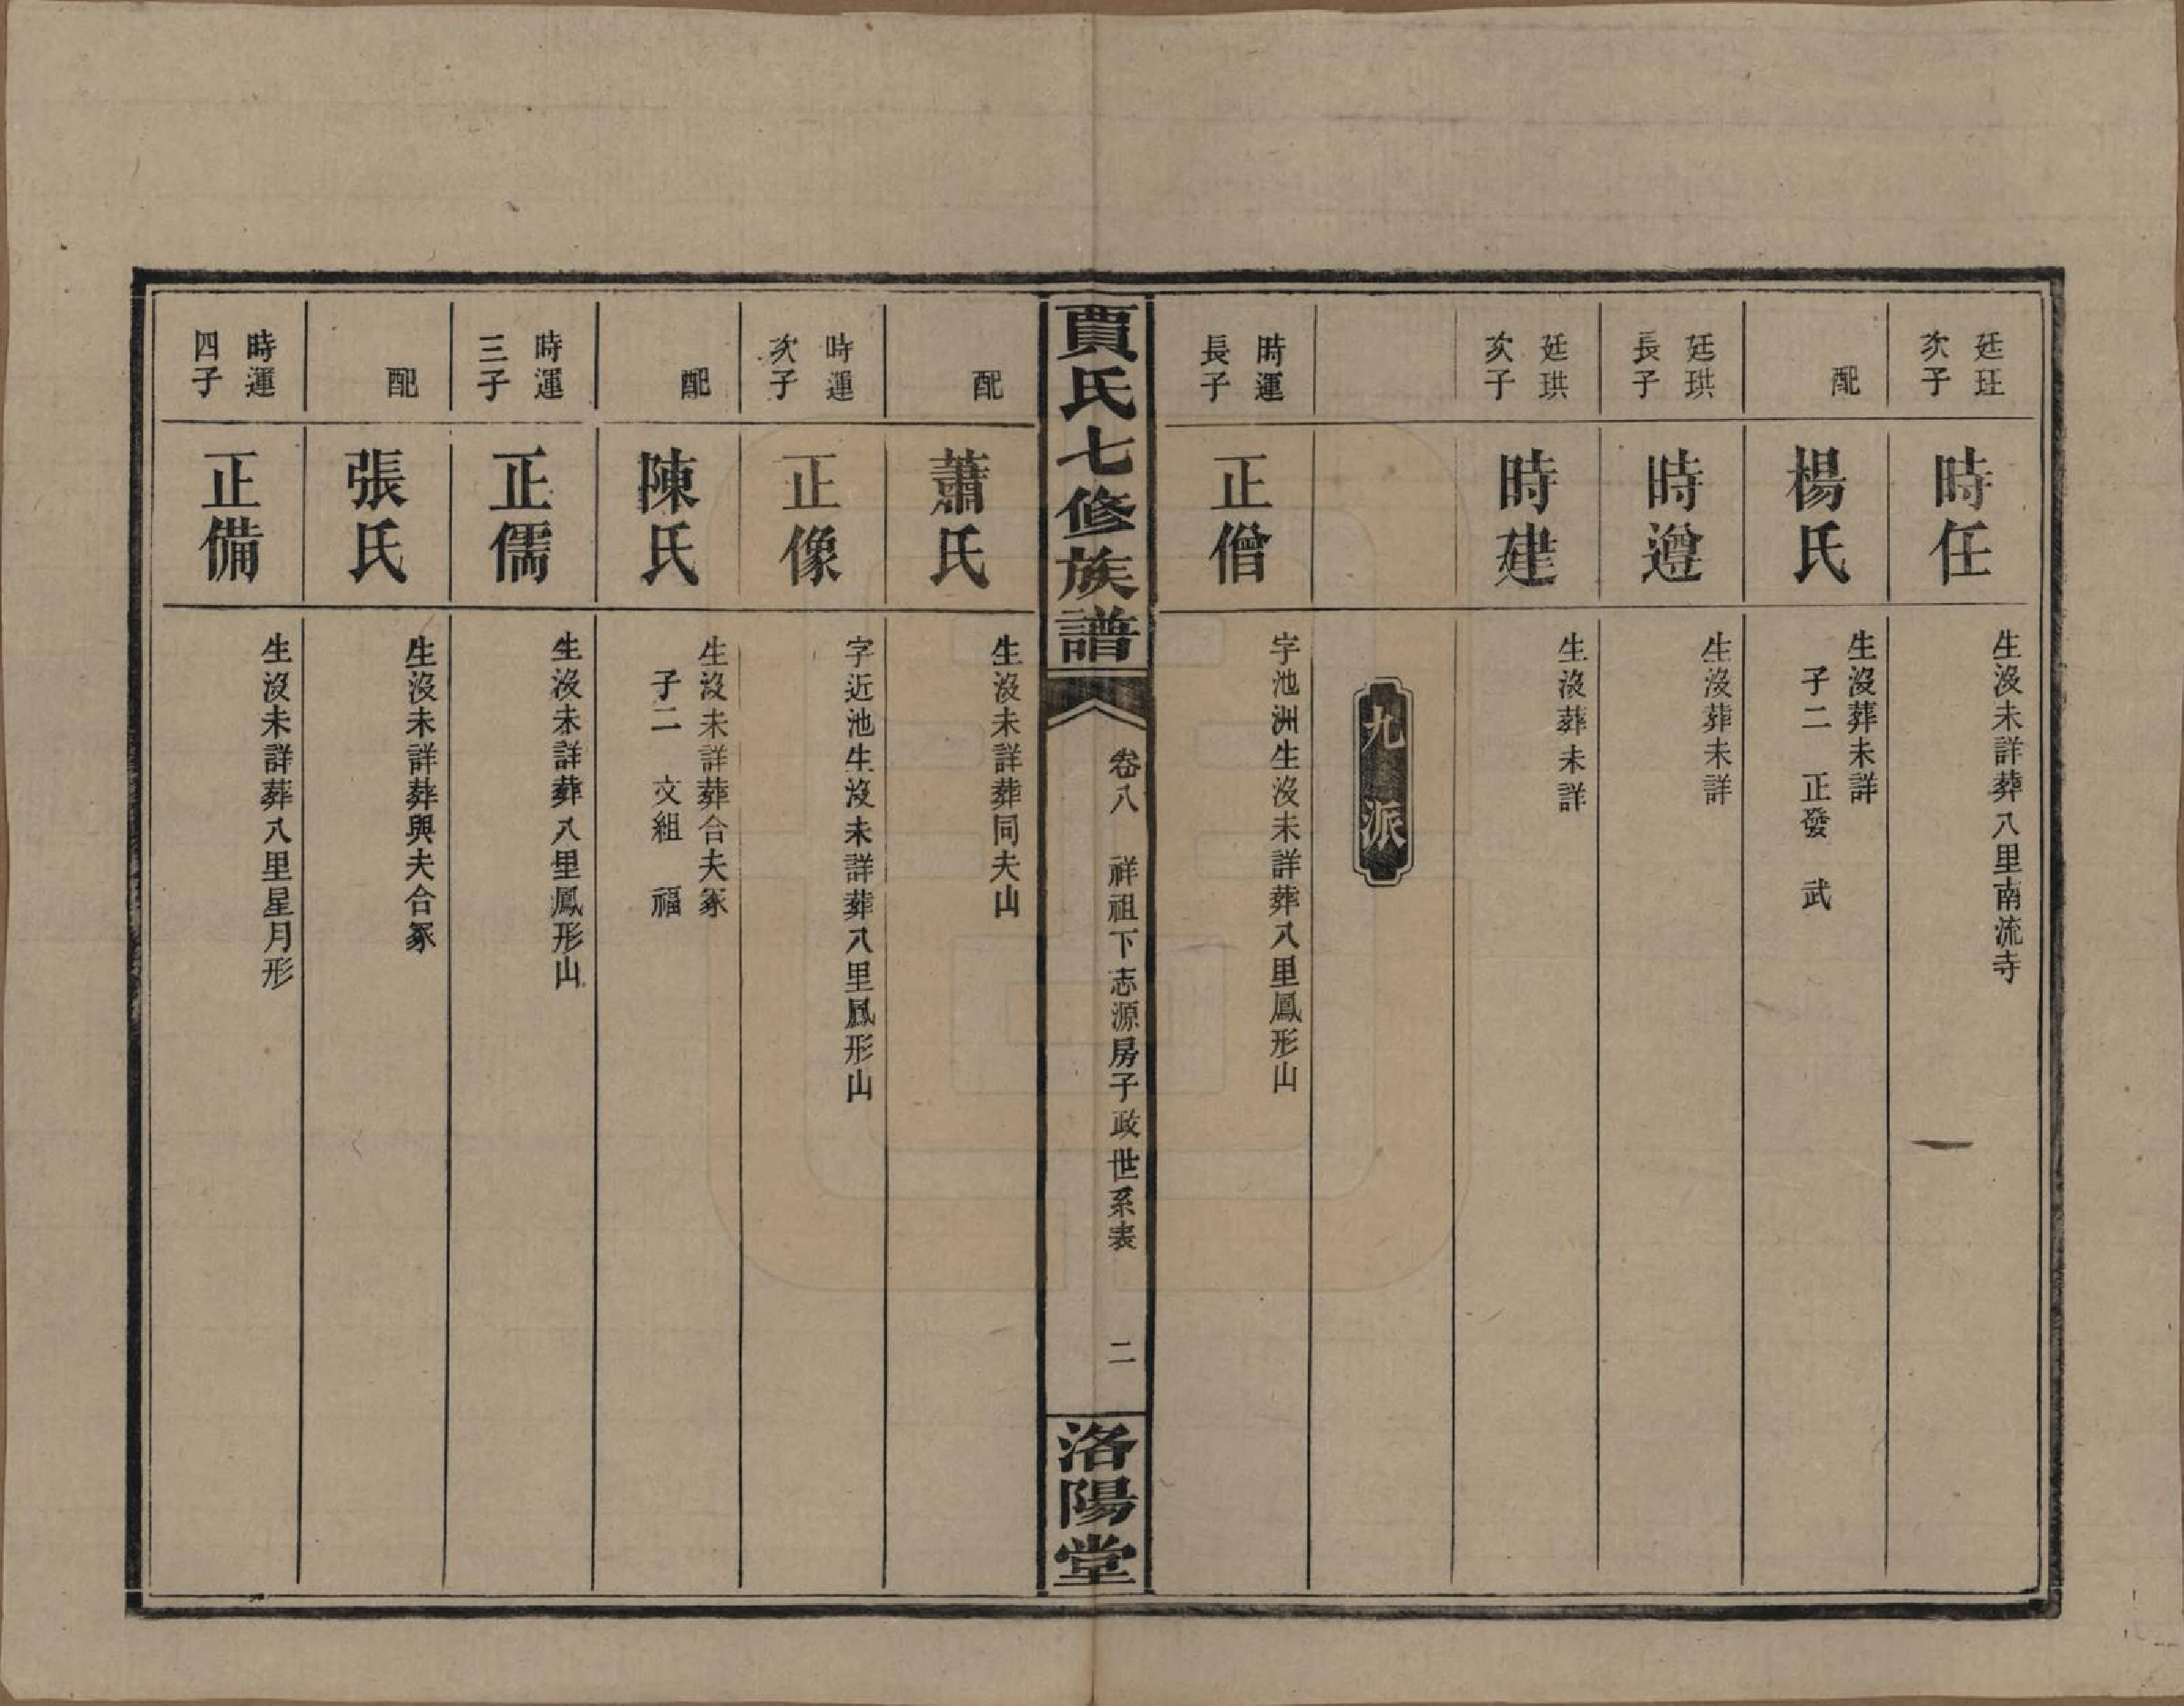 廷玨
次子
時任
生沒未詳葬八里南流寺
配
楊氏
生沒葬未詳
子二　正發　武
廷珙
長子
時遵
生沒葬未詳
廷珙
次子
時建
生沒葬未詳
九派
時運
長子
正僧
字池洲生沒未詳葬八里鳳形山
賈氏七修族譜
卷八　祥祖下志源房子政世系表　二
洛陽堂
配
蕭氏
生沒未詳葬同夫山
時運
次子
正像
字近池生沒未詳葬八里鳳形山
配
陳氏
生沒未詳葬合夫冢
子二　文組　福
時運
三子
正儒
生沒未詳葬八里鳳形山
配
張氏
生沒未詳葬與夫合冢
時運
四子
正備
生沒未詳葬八里星月形